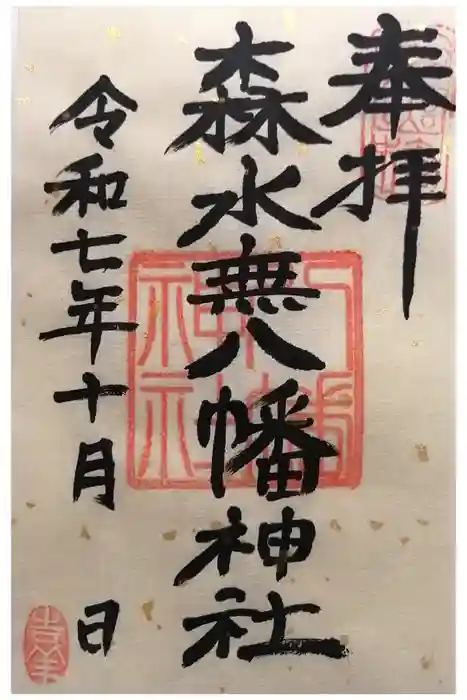 奉拝
森水無八幡神社
令和七年十月 日